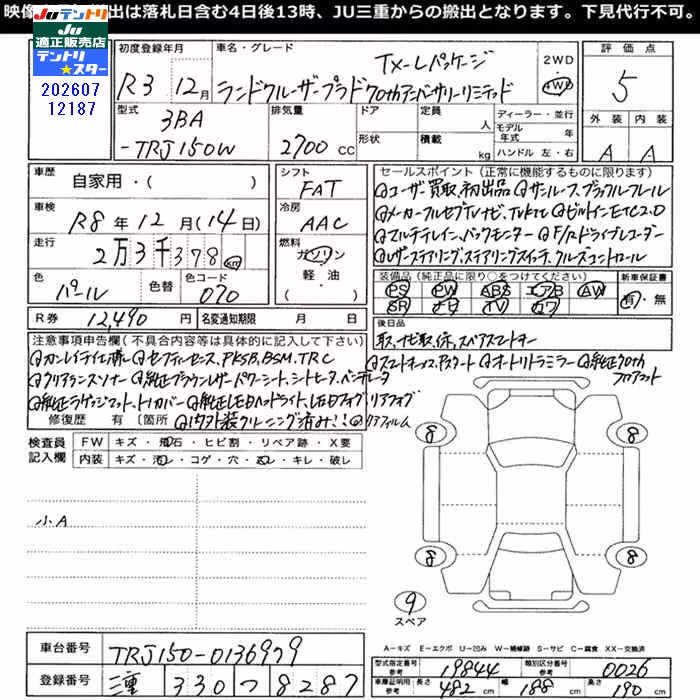 映像 出は落札日含む4日後13時、JU三重からの搬出となります。下見代行不可。
JUテントリ
JU適正販売店
テントリ★スター
202607
12187
初度登録年月 R3年12月
車名・グレード TX-Lパッケージ
ランドクルーザープラド70thアニバーサリーリミテッド
2WD 4WD
評価点 5
外装 A 内装 A
型式 3BA-TRJ150W
排気量 2700cc
ドア 形状
定員 人
積載 kg
ディーラー・並行
モデル年式 年
ハンドル 左・右
車歴 自家用・( )
車検 R8年12月(14日)
走行 2万3千378km
色 パール 色替 色コード 070
シフト FAT
冷房 AAC
燃料 ガソリン・軽油 ( )
R券 12,490円 名変通知期限 月 日
セールスポイント(正常に機能するものに限ります)
◎ユーザー買取、初出品 ◎サンルーフ、ブラックルーフレール
◎メーカーフルセグTVナビ、TVKit ◎ビルトインETC2.0
◎マルチテレイン、バックモニター ◎F/Rドライブレコーダー
◎レザーステアリング、ステアリングスイッチ、クルーズコントロール
装備品(純正品に限り○をつけてください)
PS PW ABS エアB AW
SR ナビ TV カワ
新車保証書 有・無
後日品
取、ナビ取、保、スペアスマートキー
注意事項申告欄(不具合内容等は具体的に記入して下さい)
◎セーフティセンス、PKSB、BSM、TRC ◎スマートキー×2、Pスタート ◎オートリトラミラー ◎純正70thフロアマット
◎クリアランスソナー ◎純正ブラウンレザーパワーシート、シートヒータ、ベンチレータ
◎純正ラゲッジマット、トノカバー ◎純正LEDヘッドライト、LEDフォグ、リアフォグ
修復歴 有 〔箇所 ◎内外装クリーニング済み!! ◎リアフィルム
検査員記入欄
FW キズ・飛石・ヒビ割・リペア跡・X要
内装 キズ・汚レ・コゲ・穴・スレ・キレ・破レ
小A
8 8
8 8
9
スペア
A-キズ E-エクボ U-凹み W-補修跡 S-サビ C-腐食 XX-交換済
車台番号 TRJ150-0136979
登録番号 三重 330 つ 8287
型式指定番号 参考 19844 類別区分番号 参考 0026
車庫証明用 参考 長さ 482cm 幅 188cm 高さ 190cm